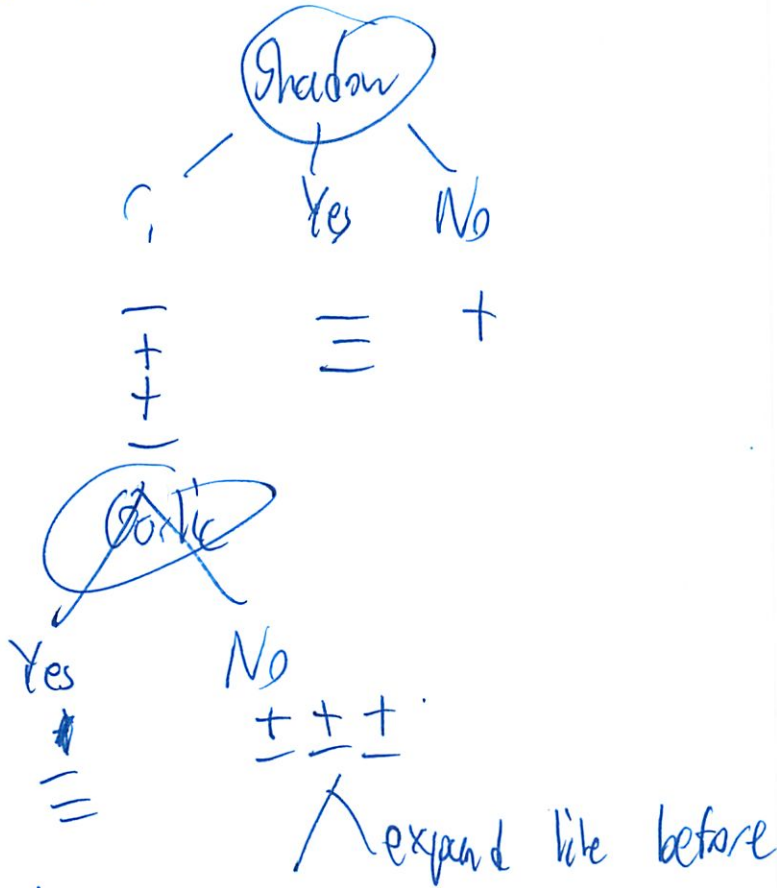 Shadow
? Yes No
— — +
+ —
+ —
—
Garlic
Yes No
+ + +
— — — —
— —
expand like before